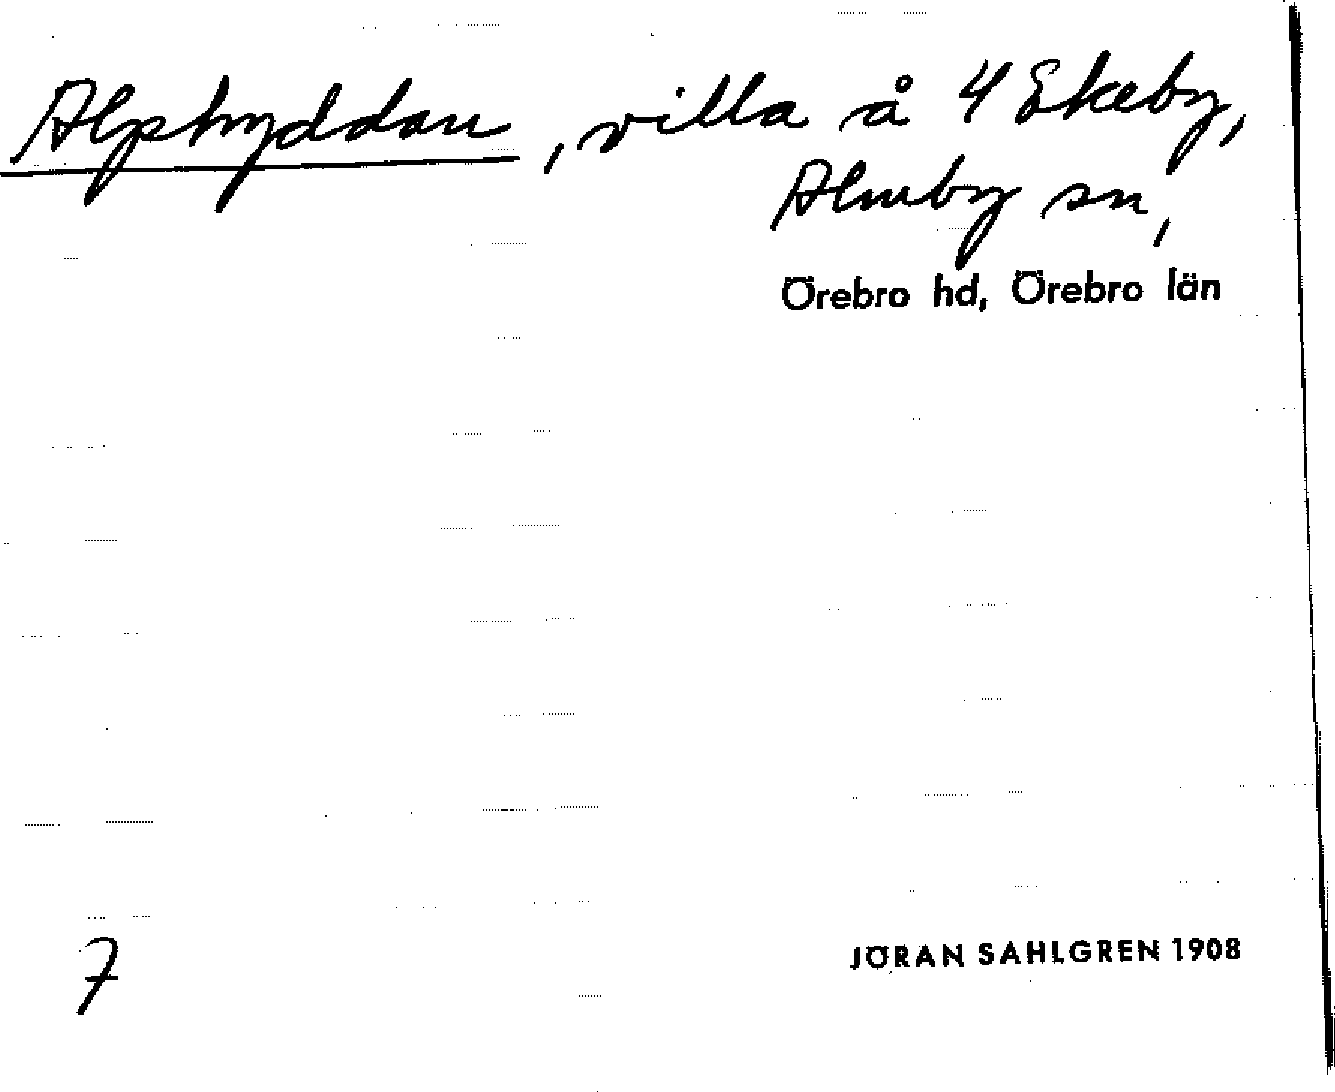 Alphyddan, villa å 4 Ekeby,
Almby sn,
Örebro hd, Örebro län
7
JÖRAN SAHLGREN 1908